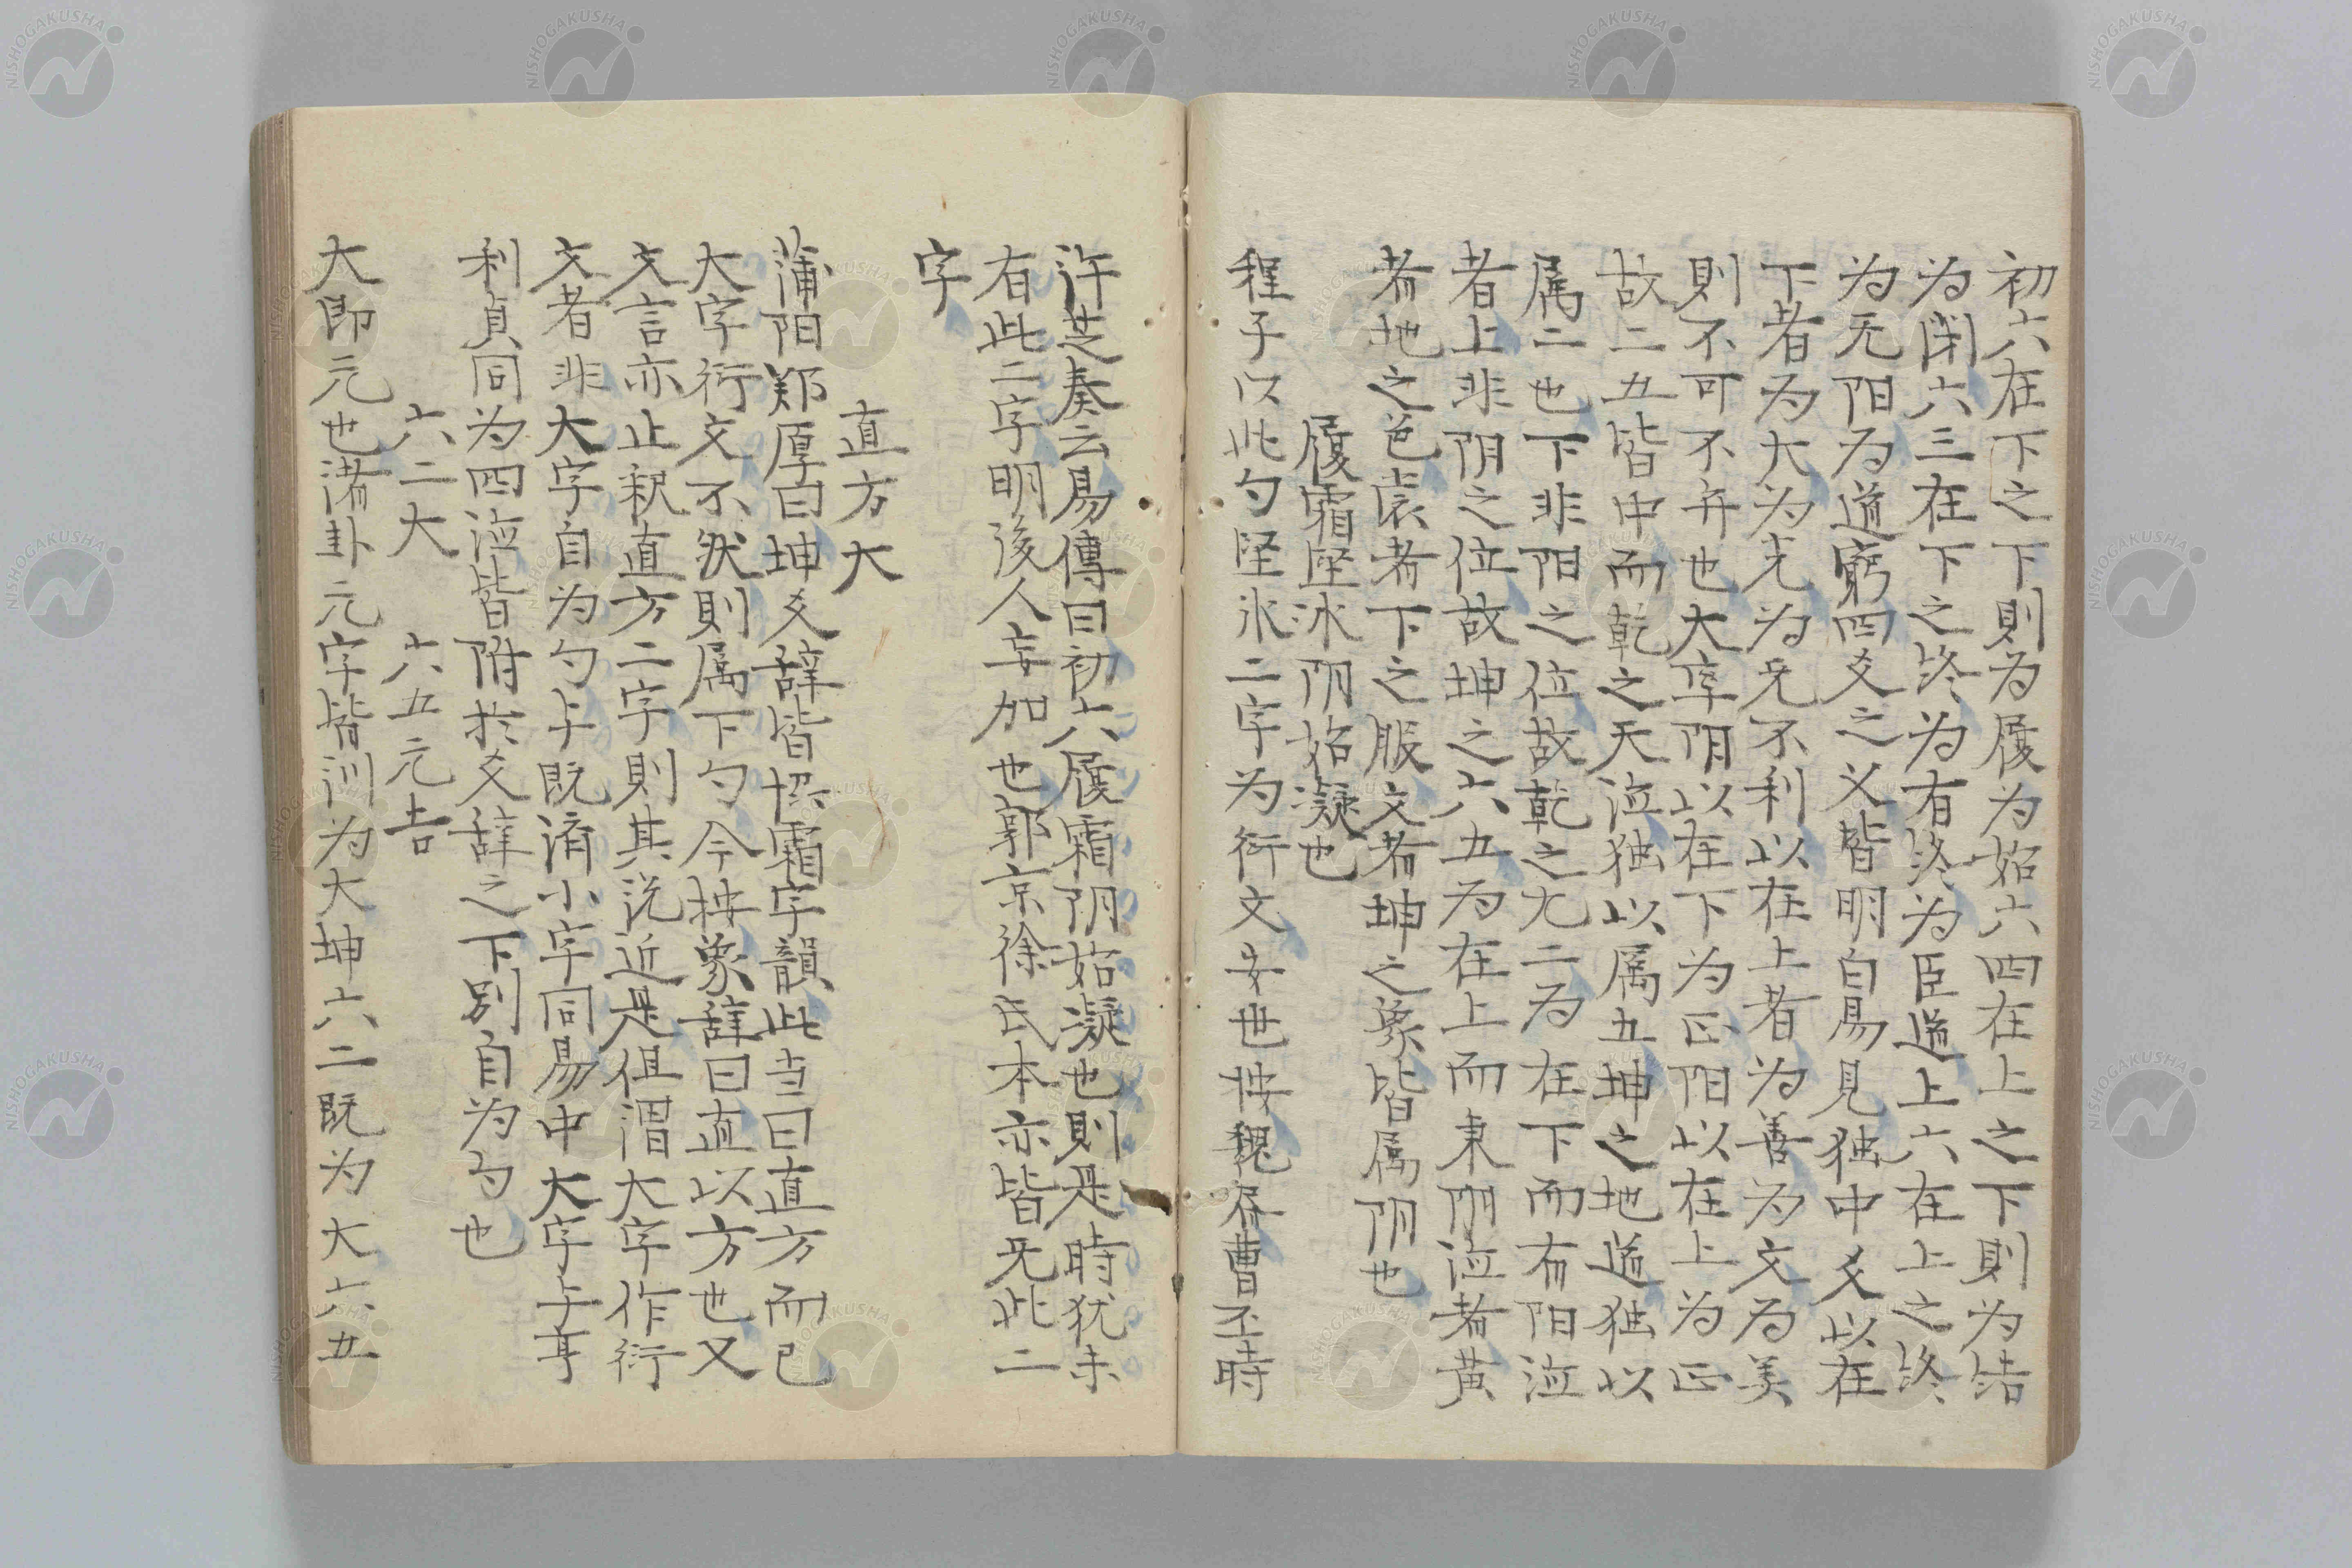 初六在下之下則为履为始六四在上之下則为结
为闭六三在下之终为有终为臣道上六在上之终
为无阳为道窮四爻之义皆明白易見独中爻以在
下者为大为光为无不利以在上者为善为文为美
則不可不弁也大率阴以在下为正阳以在上为正
故二五皆中而乾之天位独以属五坤之地道独以
属二也下非阳之位故乾之九二为在下而有阳位
者上非阴之位故坤之六五为在上而秉阴位者黄
者地之色裳者下之服文者坤之象皆属阴也
履霜坚冰阴始凝也
程子以此勺坚氷二字为衍文 世按魏 曹丕時
许芝奏云易傳曰初六履霜阴始凝也則是時犹未
有此二字明後人妄加也郭京徐氏本亦皆无此二
字
直方大
蒲阳郑厚曰坤爻辞皆协霜字韻此当曰直方而已
大字衍文不然則属下勺今按象辞曰直以方也又
文言亦止釈直方二字則其说近是但谓大字作衍
文者非大字自为勺与既濟小字同易中大字与亨
利貞同为四位皆附於爻辞之下别自为勺也
六二大　六五元吉
大即元也诸卦元字皆训为大坤六二既为大六五
NISHOGAKUSHA